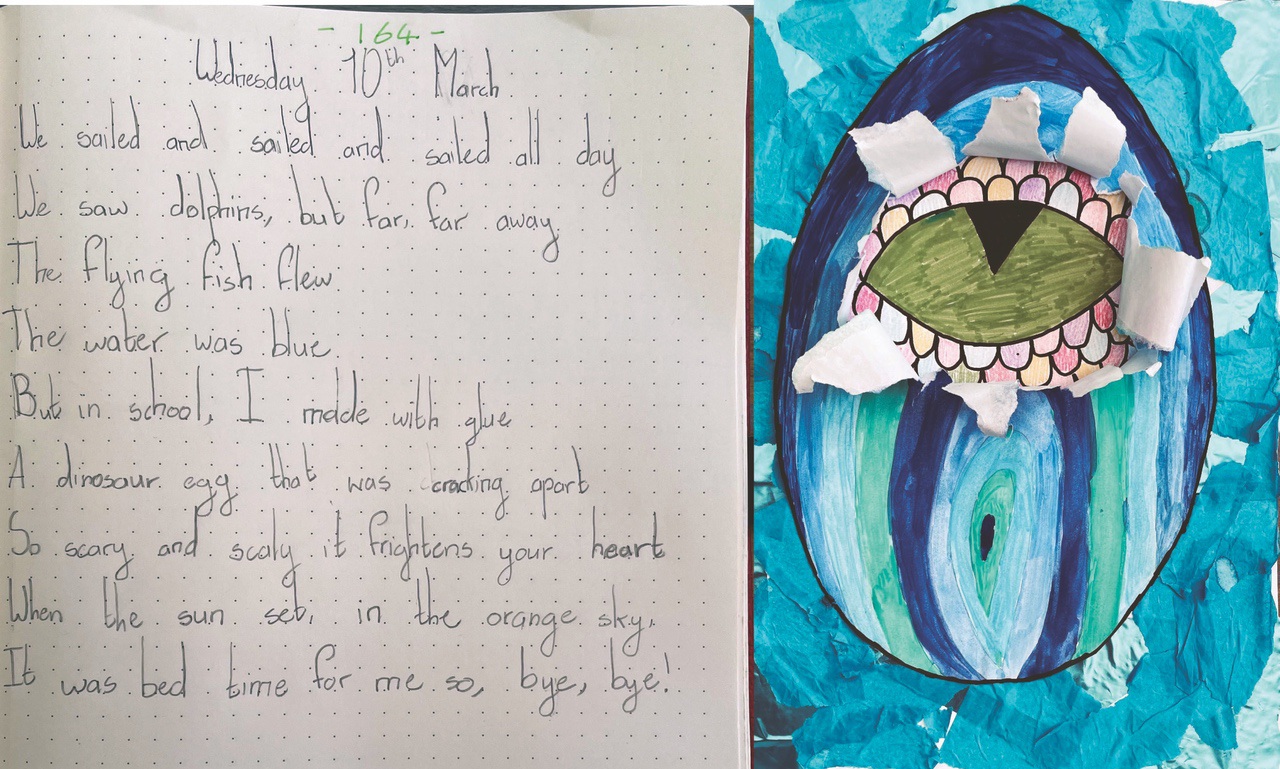 - 164 -
Wednesday 10th March
We sailed and sailed and sailed all day
We saw dolphins, but far, far away
The flying fish flew
The water was blue
But in school, I made with glue
A dinosaur egg that was cracking apart
So scary and scaly it frightens your heart
When the sun set, in the orange sky,
It was bed time for me so, bye, bye!